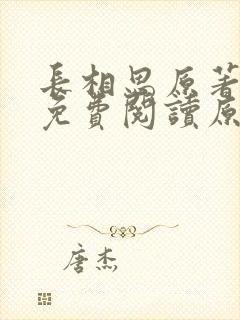 長相思原著
免費閱讀原
唐杰